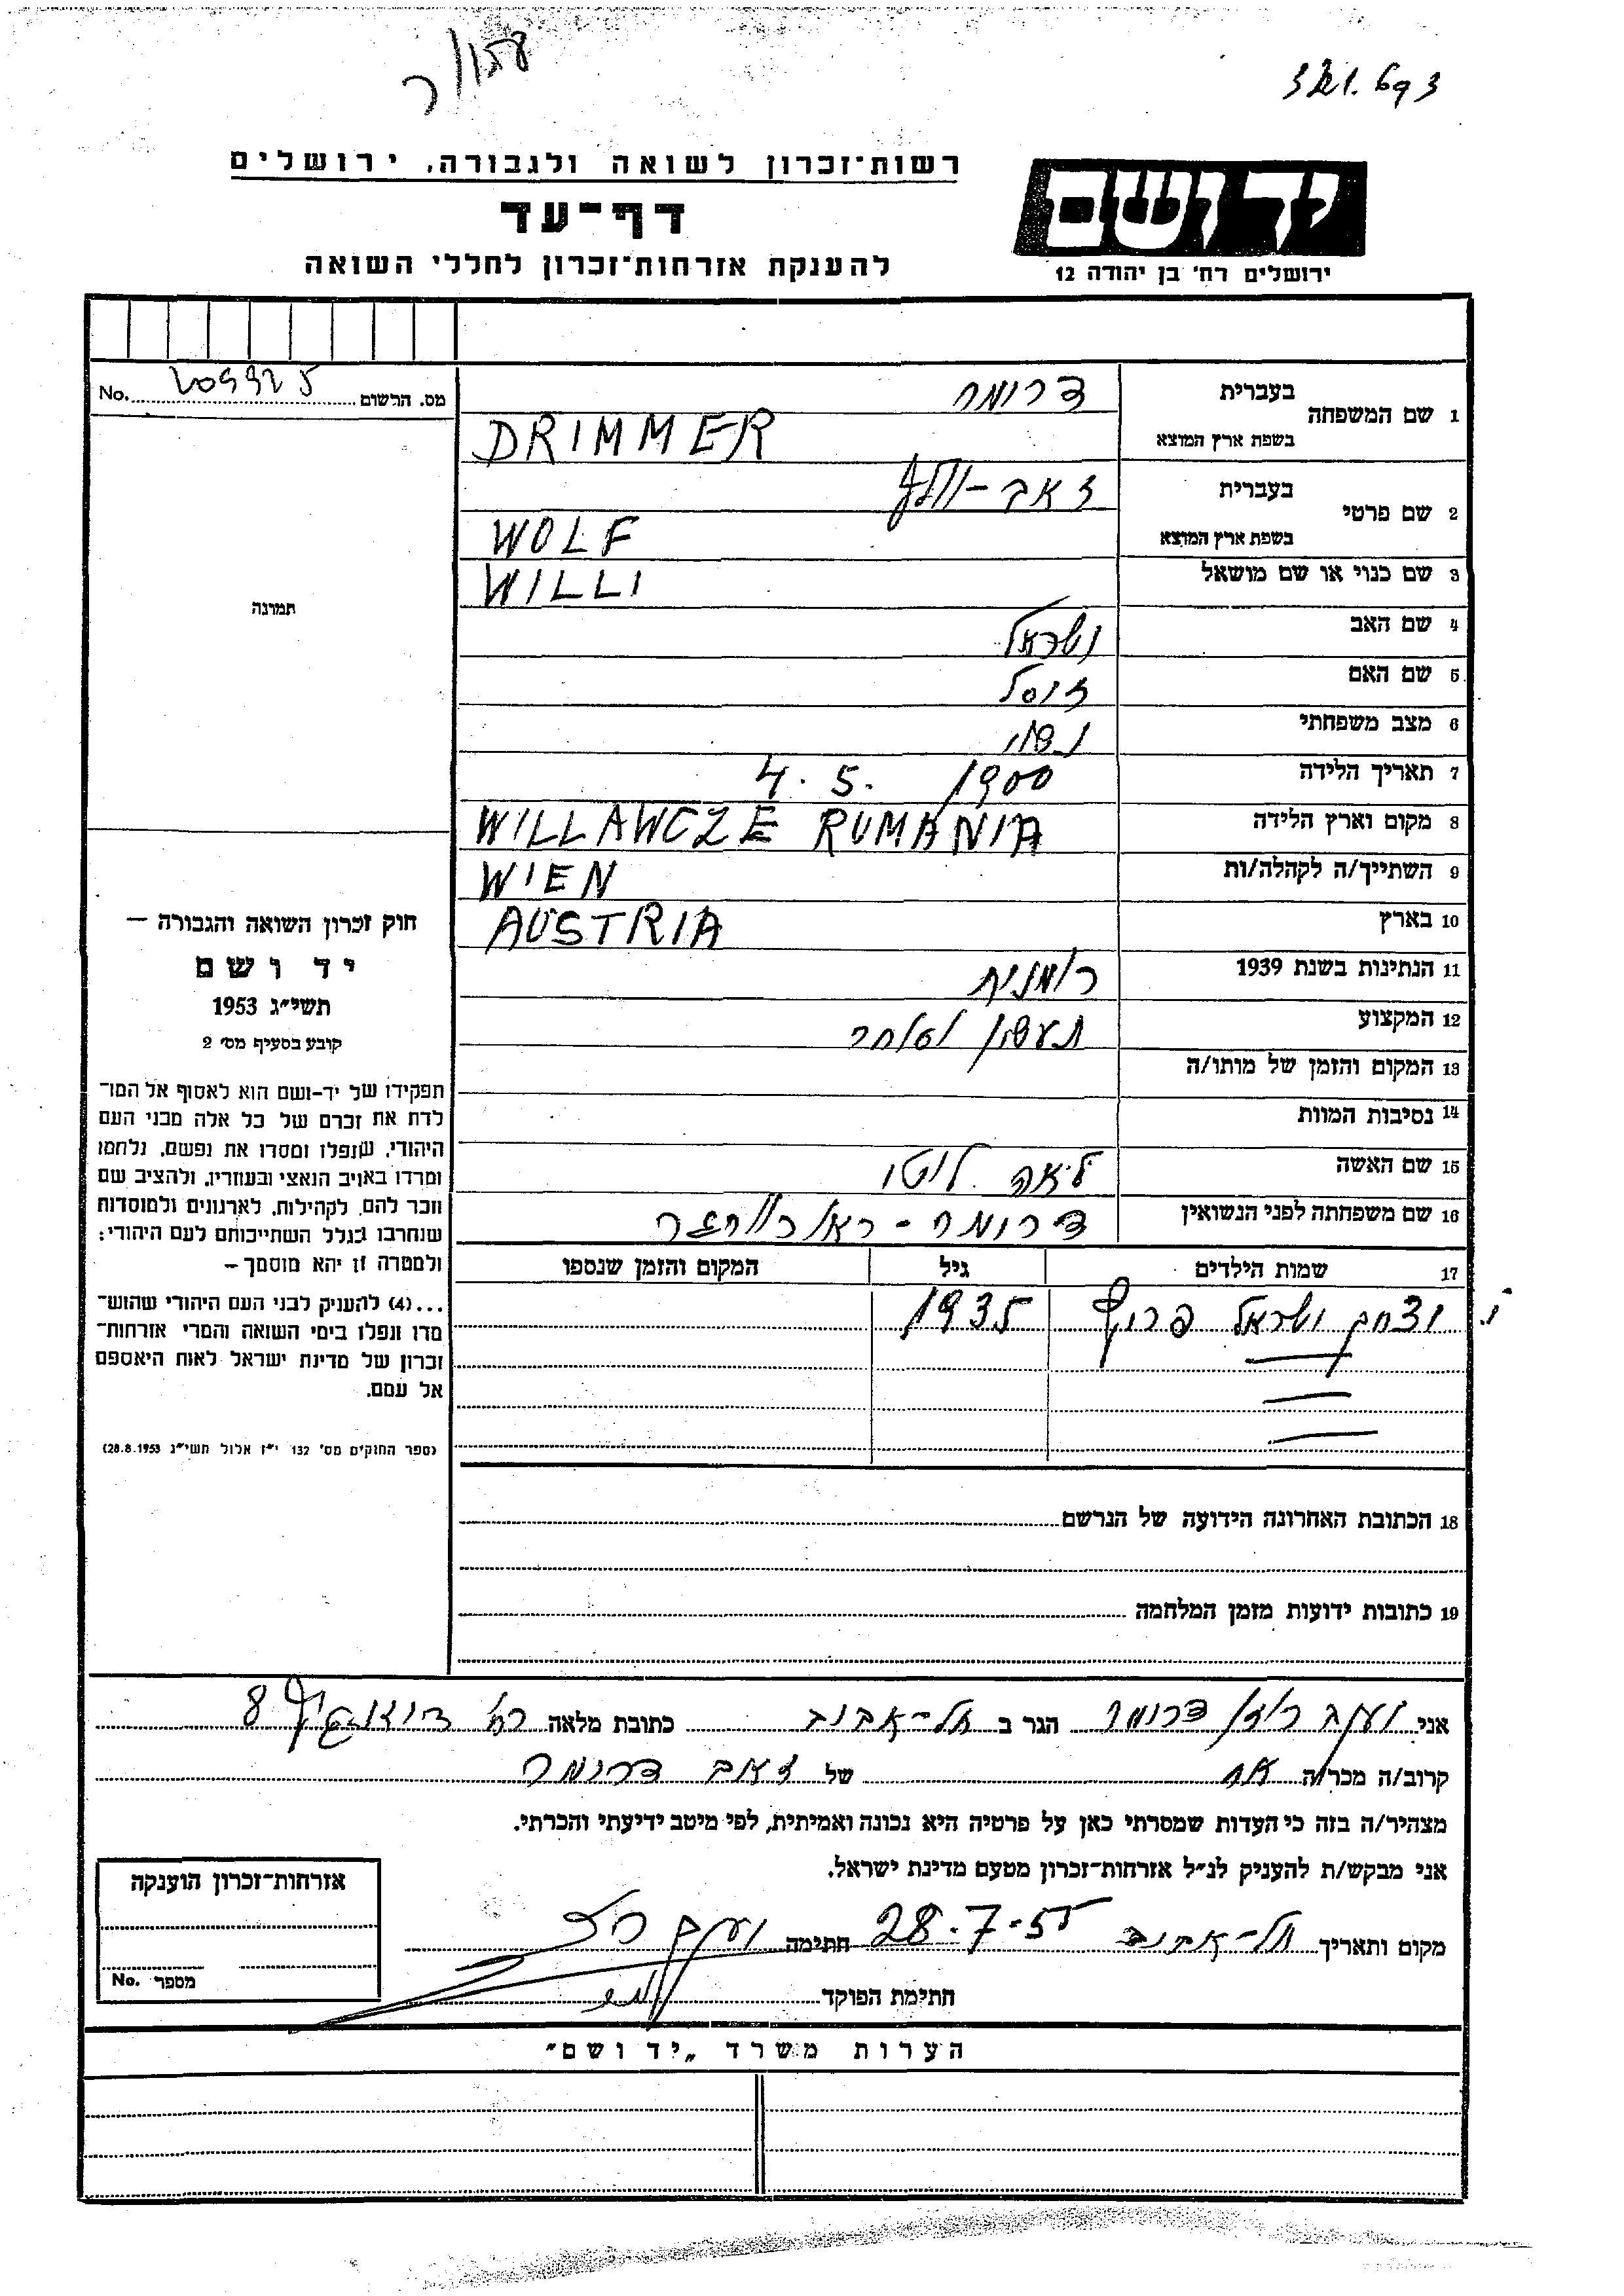 רשות־זכרון לשואה ולגבורה, ירושלים
דף־עד
להענקת אזרחות־זכרון לחללי השואה
יד ושם
ירושלים רח' בן יהודה 12
מס. הרשום 209925 No.
1 שם המשפחה
בעברית דרימר
בשפת ארץ המוצא DRIMMER
2 שם פרטי
בעברית זאב-וולף
בשפת ארץ המוצא WOLF
3 שם כנוי או שם מושאל WILLI
4 שם האב ישראל
5 שם האם זיסל
6 מצב משפחתי נשוי
7 תאריך הלידה 4. 5. 1900
8 מקום וארץ הלידה WILLAWCZE RUMANIA
9 השתייך/ה לקהלה/ות WIEN
10 בארץ AUSTRIA
11 הנתינות בשנת 1939 רומנית
12 המקצוע תעשין ומסחר
13 המקום והזמן של מותו/ה
14 נסיבות המוות
15 שם האשה לאה לוטי
16 שם משפחתה לפני הנשואין דרימר -
17 שמות הילדים גיל המקום והזמן שנספו
יצחק ישראל 1935
18 הכתובת האחרונה הידועה של הנרשם
19 כתובות ידועות מזמן המלחמה
תמונה
חוק זכרון השואה והגבורה —
יד ושם
תשי"ג 1953
קובע בסעיף מס' 2
תפקידו של יד-ושם הוא לאסוף אל המו־
לדת את זכרם של כל אלה מבני העם
היהודי, שנפלו ומסרו את נפשם, נלחמו
ומרדו באויב הנאצי ובעוזריו, ולהציב שם
וזכר להם, לקהילות, לארגונים ולמוסדות
שנחרבו בגלל השתייכותם לעם היהודי;
ולמטרה זו יהא מוסמך —
...(4) להעניק לבני העם היהודי שהוש־
מדו ונפלו בימי השואה והמרי אזרחות־
זכרון של מדינת ישראל לאות היאספם
אל עמם.
(ספר החוקים מס' 132 י"ז אלול תשי"ג 28.8.1953)
אני יעקב רוזן דרימר הגר ב תל-אביב כתובת מלאה רח' 8
קרוב/ה מכר/ה אח של זאב דרימר
מצהיר/ה בזה כי העדות שמסרתי כאן על פרטיה היא נכונה ואמיתית, לפי מיטב ידיעתי והכרתי.
אני מבקש/ת להעניק לנ"ל אזרחות-זכרון מטעם מדינת ישראל.
מקום ותאריך תל-אביב 28.7.55 חתימה יעקב
חתימת הפוקד
אזרחות־זכרון הוענקה
מספר No.
הערות משרד „יד ושם"